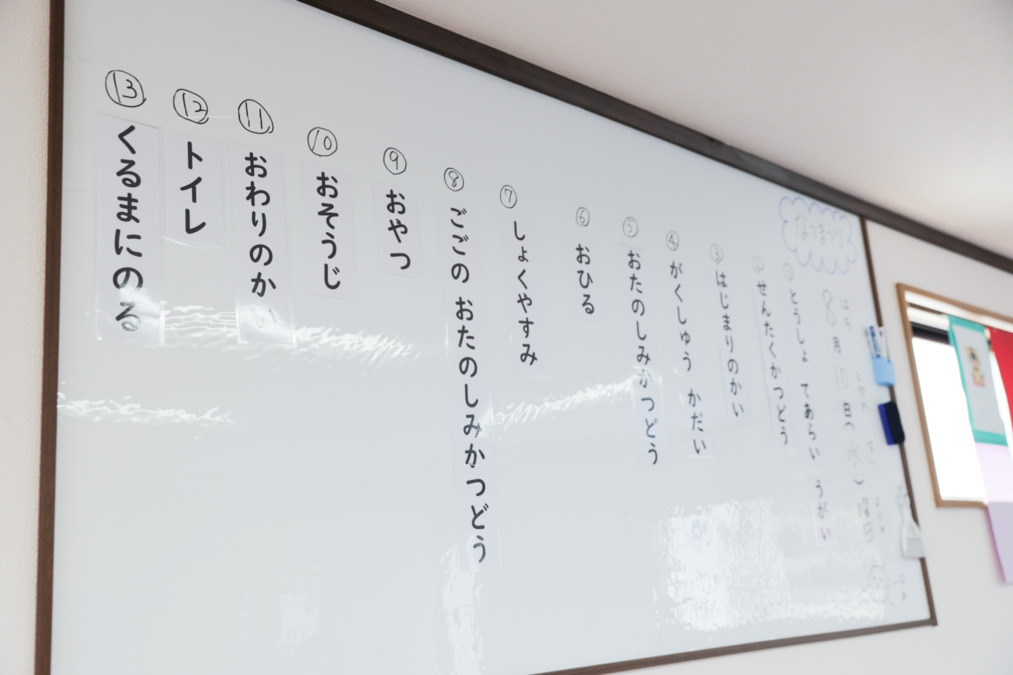 なつまつり
8月10日(水)曜日
① とうしょ てあらい うがい
② せんたくかつどう
③ はじまりのかい
④ がくしゅう かだい
⑤ おたのしみかつどう
⑥ おひる
⑦ しょくやすみ
⑧ ごごの おたのしみかつどう
⑨ おやつ
⑩ おそうじ
⑪ おわりのか
⑫ トイレ
⑬ くるまにのる